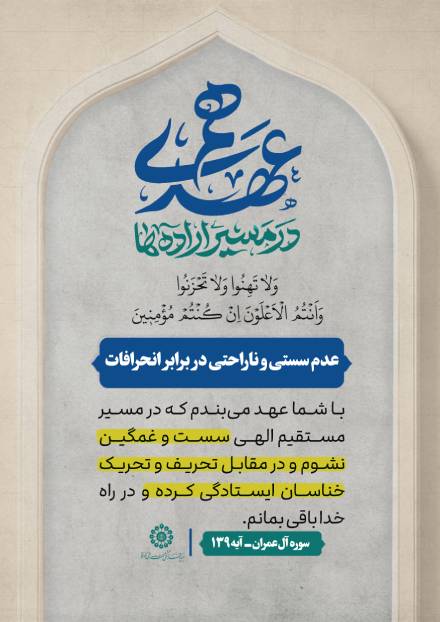 عهد همدلی
در مسیر اراده‌ها
وَلَا تَهِنُوا وَلَا تَحْزَنُوا
وَاَنْتُمُ الْاَعْلَوْنَ اِنْ کُنْتُمْ مُؤْمِنِینَ
عدم سستی و ناراحتی در برابر انحرافات
با شما عهد می‌بندم که در مسیر
مستقیم الهی سست و غمگین
نشوم و در مقابل تحریف و تحریک
خناسان ایستادگی کرده و در راه
خدا باقی بمانم.
سوره آل عمران ـ آیه ۱۳۹